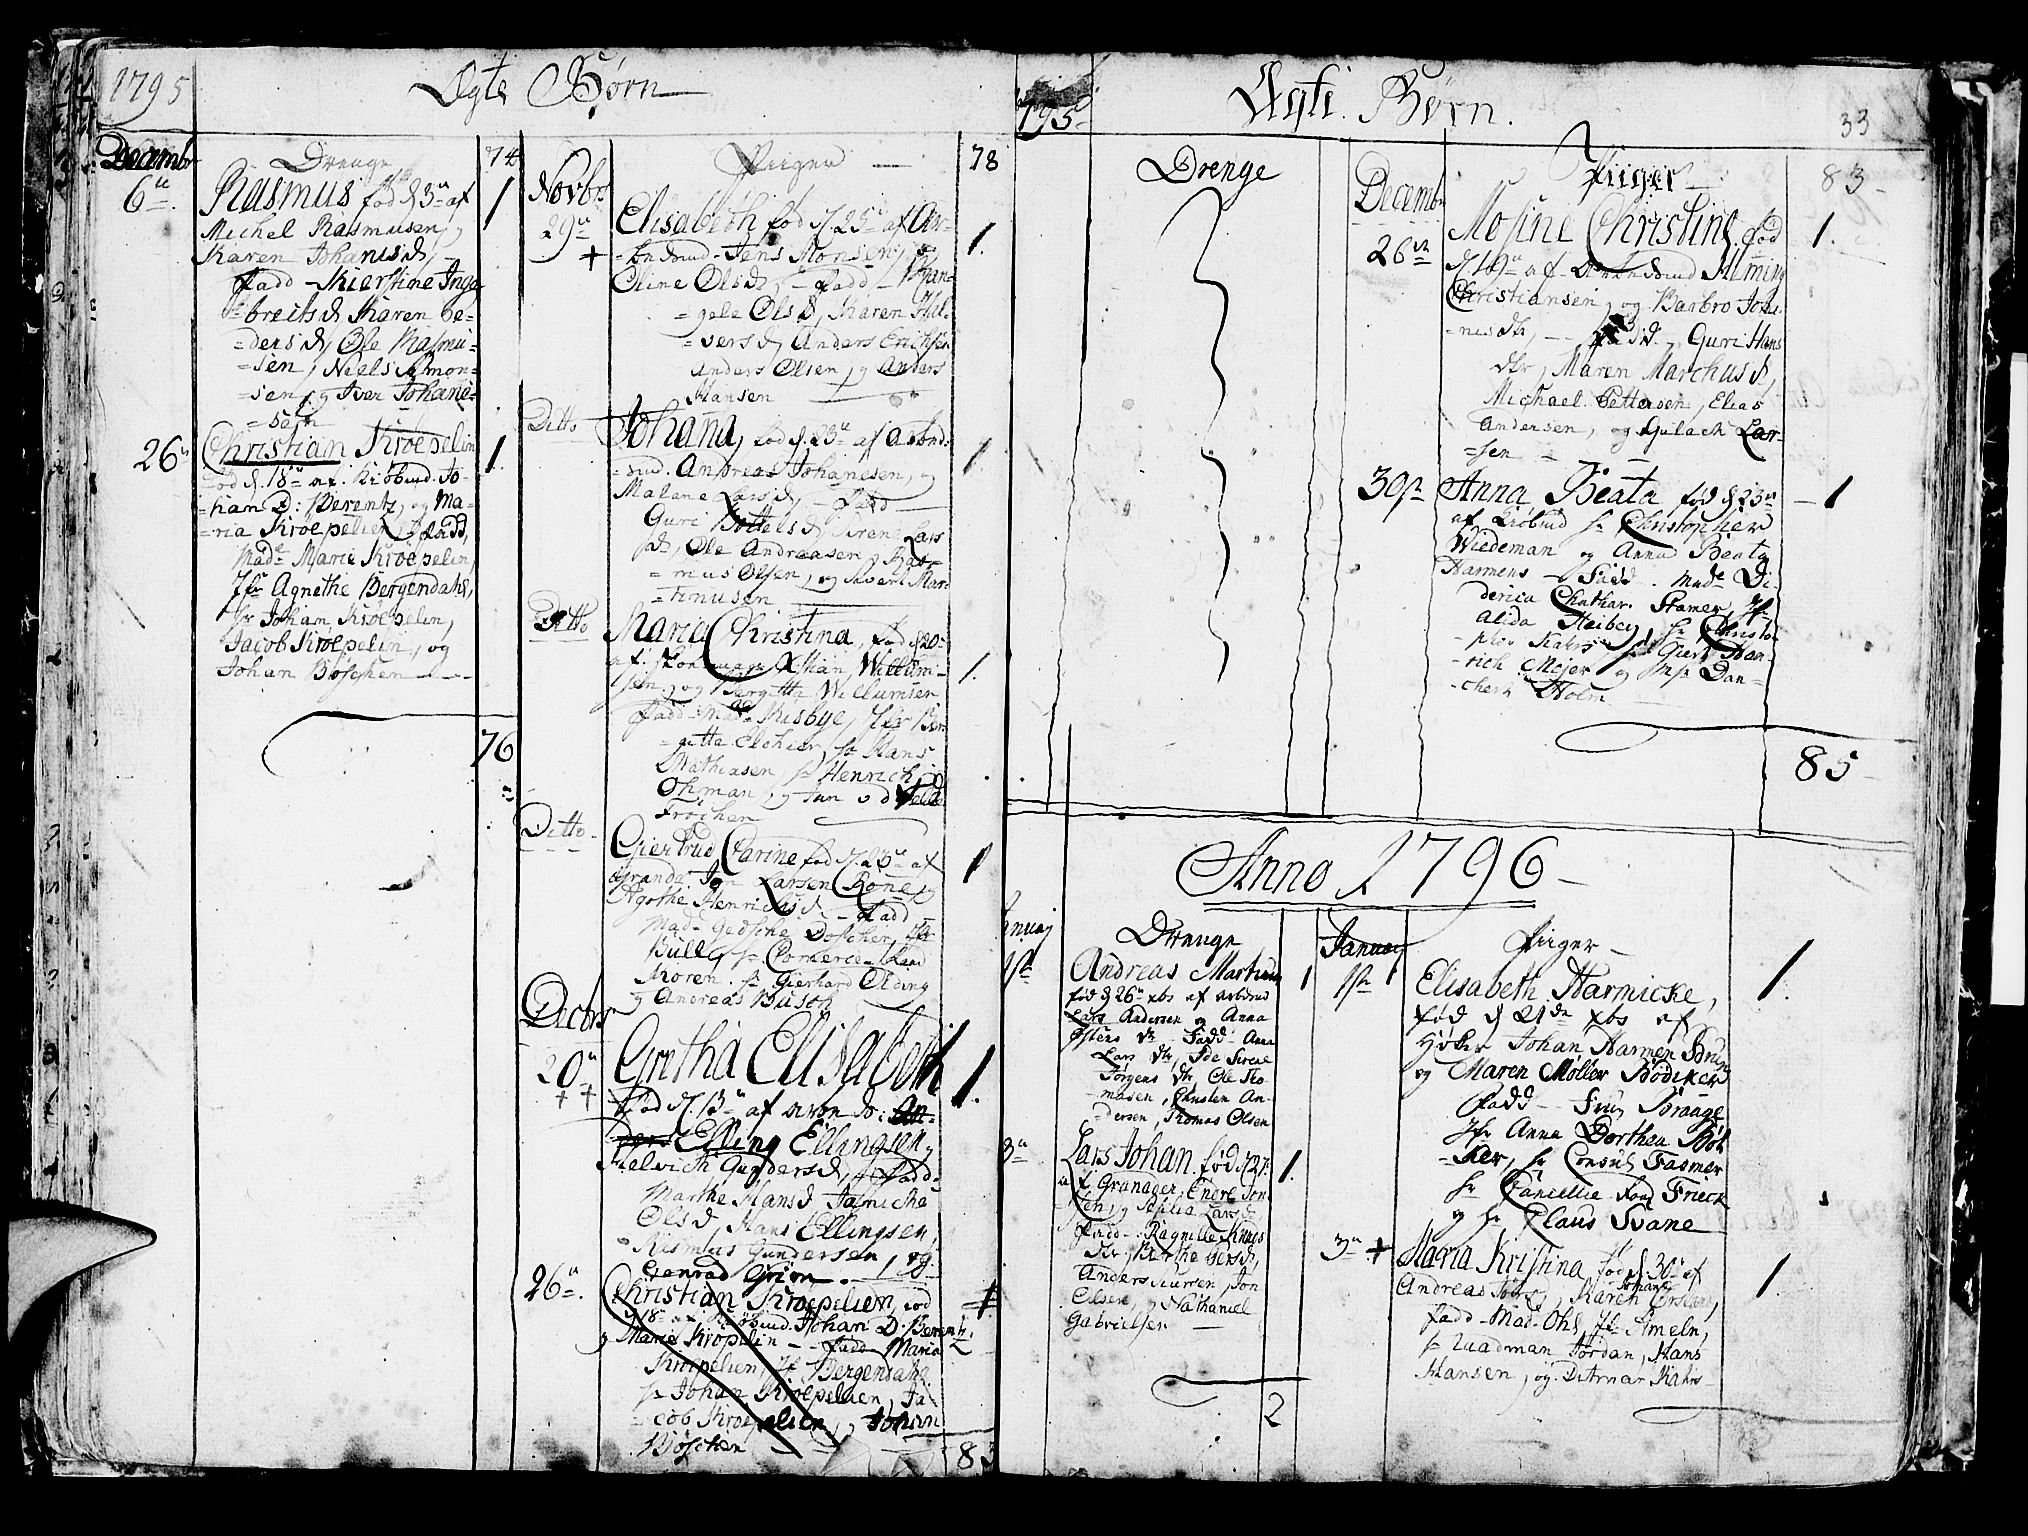 1795
Ægte Børn
Decembr
Drenge
74
6te
Rasmus fød d. 3de af
1
Michel Rasmusen, og
Karen Johanisd,
Fadd - Kierstine Inge
breitsd, Karen Pe=
=dersd, Ole Rasmu=
=sen, Niels Simon=
=sen, og Iver Johane=
=sen
26de
Christian Kroepelin
1.
fød d. 18de af Kiøbmd. Jo=
=han D: Berentz, og Ma=
=ria Kroepelien, Fadd,
Made Marie Kroepelin,
Jfr Agnethe Bergendahl,
Hr Johan Kroepelin,
Jacob Kroepelin, og
Johan Bøschen
76
Novbr
Piiger
78
29de
+
Elisabeth fød d. 25de af Ar=
1.
=beidsmd - Jens Monsen, og
Eline Olsd, - Fadd -
=gele Olsd, Karen Hal=
=versd, Anders Erichsen
Anders Olsen, og Anders
Hansen
Ditto
Johana, fød d. 23de af Arbeids
1
=md. Andreas Johanesen, og
Malene Larsd, - Fadd
Guri Bottelsd, Sirene Lars
=d, Ole Andreasen, og Ras=
=mus Olsen, og Sivert Mar=
=tinusen
Ditto
Marie Christina, fød d. 20de
1.
af Skomager Christian Willum=
=sen, og Bergitte Willumsen
Fadd - Made Husbye, Jfr Ber=
=gitte Elchier, Hr Hans
Mathiasen, Hr Henrich
Ohman, og Jan v d
Frøchen
Ditto
Giertrud Carine fød d. 23de af
1
Larsen Røne, og
Agothe Henrichsd - Fadd
Made Gedsche Døscher, Jfr
Bull, Hr Comerce-Raad
Koren, Hr Gierhard Olding
og Andreas Busch
Decbr
20de
+ +
Gretha Elisabeth
1.
fød d. 13de af
Elling Ellingsen,
Helvich Gundersd, Fadd
Marthe Hansd, Jamiche
Olsd, Hans Ellingsen,
Rasmus Gundersen, og
Conrad Grion.
26de
Christian Kroepelien, fød
d. 18de af Kiøbmd. Johan D. Berentz,
og Maria Kropelin - Fadd Maria
Kroepelien, Jfr Bergendahl
Hr Johan Kroepelien, Ja
=cob Kroepelien, og Johan
Bøschen
83
1795
Ægte Børn.
33
Drenge
Decembr
Piiger
83
26de
Mosine Christine, fød
1.
d. 19de af Arbeidsmd Fleming
Christiansen, og Barbro Joha=
=nisdtr, - Fadd. Guri Hans
dtr, Maren Marchusd,
Michael Pettersen, Elias
Andersen, og Gulach Lar=
=sen
30te
Anna Beata fød d 23de
1
af Kiøbmd Hr Christopher
Wiedeman og Anna Beata
Harmens - Fadd. Made Di=
derica Chathar. Kramer, Jfr
Alida Heiberg, Hr Christo=
=pher Kahrs, Hr Giert Hen=
=rich Meier og Msr Dan=
=chert Holm
85
Anno 1796
Januarj
Drenge
1ste
Andreas Martinus
1
fød d 26de xbr af Arbdsmd
Lars Andersen og Anna
Østens dtr Fadd - Anna
Lars dtr, Ide Sirene
Jørgens dtr, Ole Tho=
=masen, Christen An=
=dersen, Thomas Olsen
3de
Lars Johan. fød d 27
1.
af Granager Enere Jon=
=sen, og Sesilia Larsd
Fadd - Ragnille Knuds
dtr, Berthe Iversd,
Anders Iversen, Jon
Olsen, og Nathaniel
Gabrielsen
2
Januarj
Piiger
1ste
Elisabeth Harmicke,
1.
fød d 21de xbr af
Høker Johan Harmen Brugge
og Maren Møller Bødiker
Fadd - Frue Prange
Jfr Anna Dorthea Bøt=
=ker, Hr Consul Fasmer
Hr Cancellie Raad Frieck
og Hr Claus Svane
3de +
Maria Kristina fød d. 30de af
1.
Andreas Jons, Karen Johane
Fadd - Made Ohl, Jfr Ameln,
Hr Jordan, Hans
Hansen, og Ditmar Kahrs